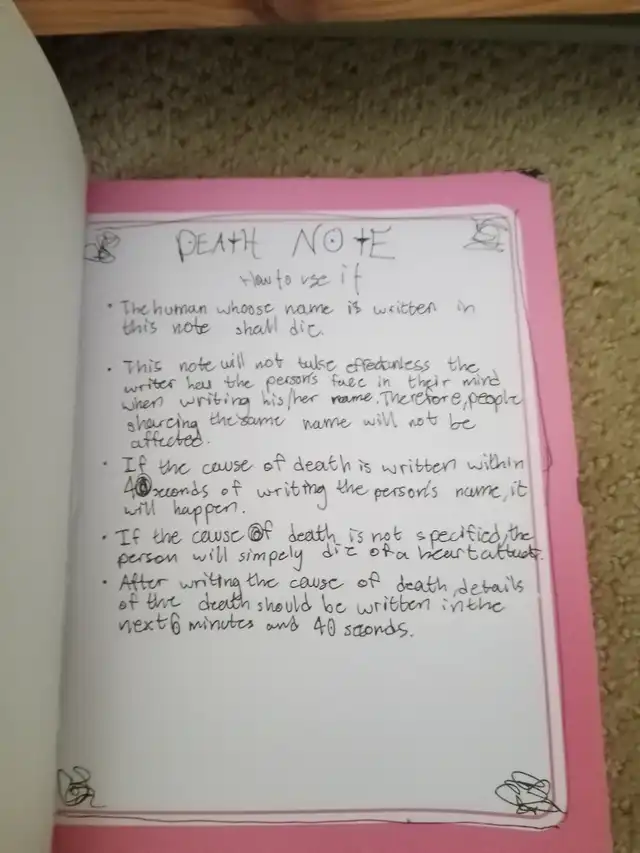 DEATH NOTE
How to use it
• The human whoose name is written in
this note shall die.
• This note will not take effect unless the
writer has the person's face in their mind
when writing his/her name. Therefore, people
sharcing the same name will not be
affected.
• If the cause of death is written within
40 seconds of writing the person's name, it
will happen.
• If the cause of death is not specified, the
person will simpely die of a heart attack.
• After writing the cause of death, details
of the death should be written in the
next 6 minutes and 40 seconds.